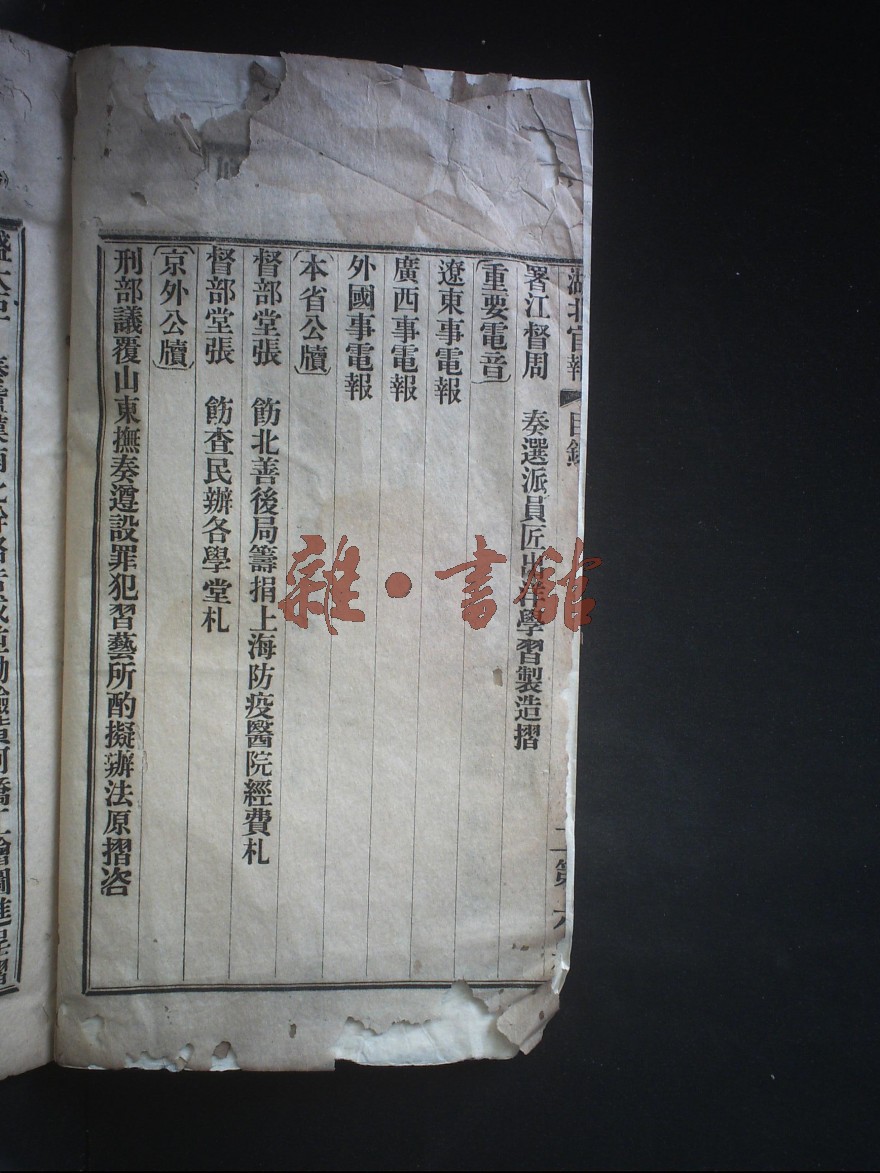 湖北官報 目錄
二 第六
署江督周 奏選派員匠出洋學習製造摺
〔重要電音〕
遼東事電報
廣西事電報
外國事電報
〔本省公牘〕
督部堂張 飭北善後局籌捐上海防疫醫院經費札
督部堂張 飭查民辦各學堂札
〔京外公牘〕
刑部議覆山東撫奏遵設罪犯習藝所酌擬辦法原摺咨
雜·書館